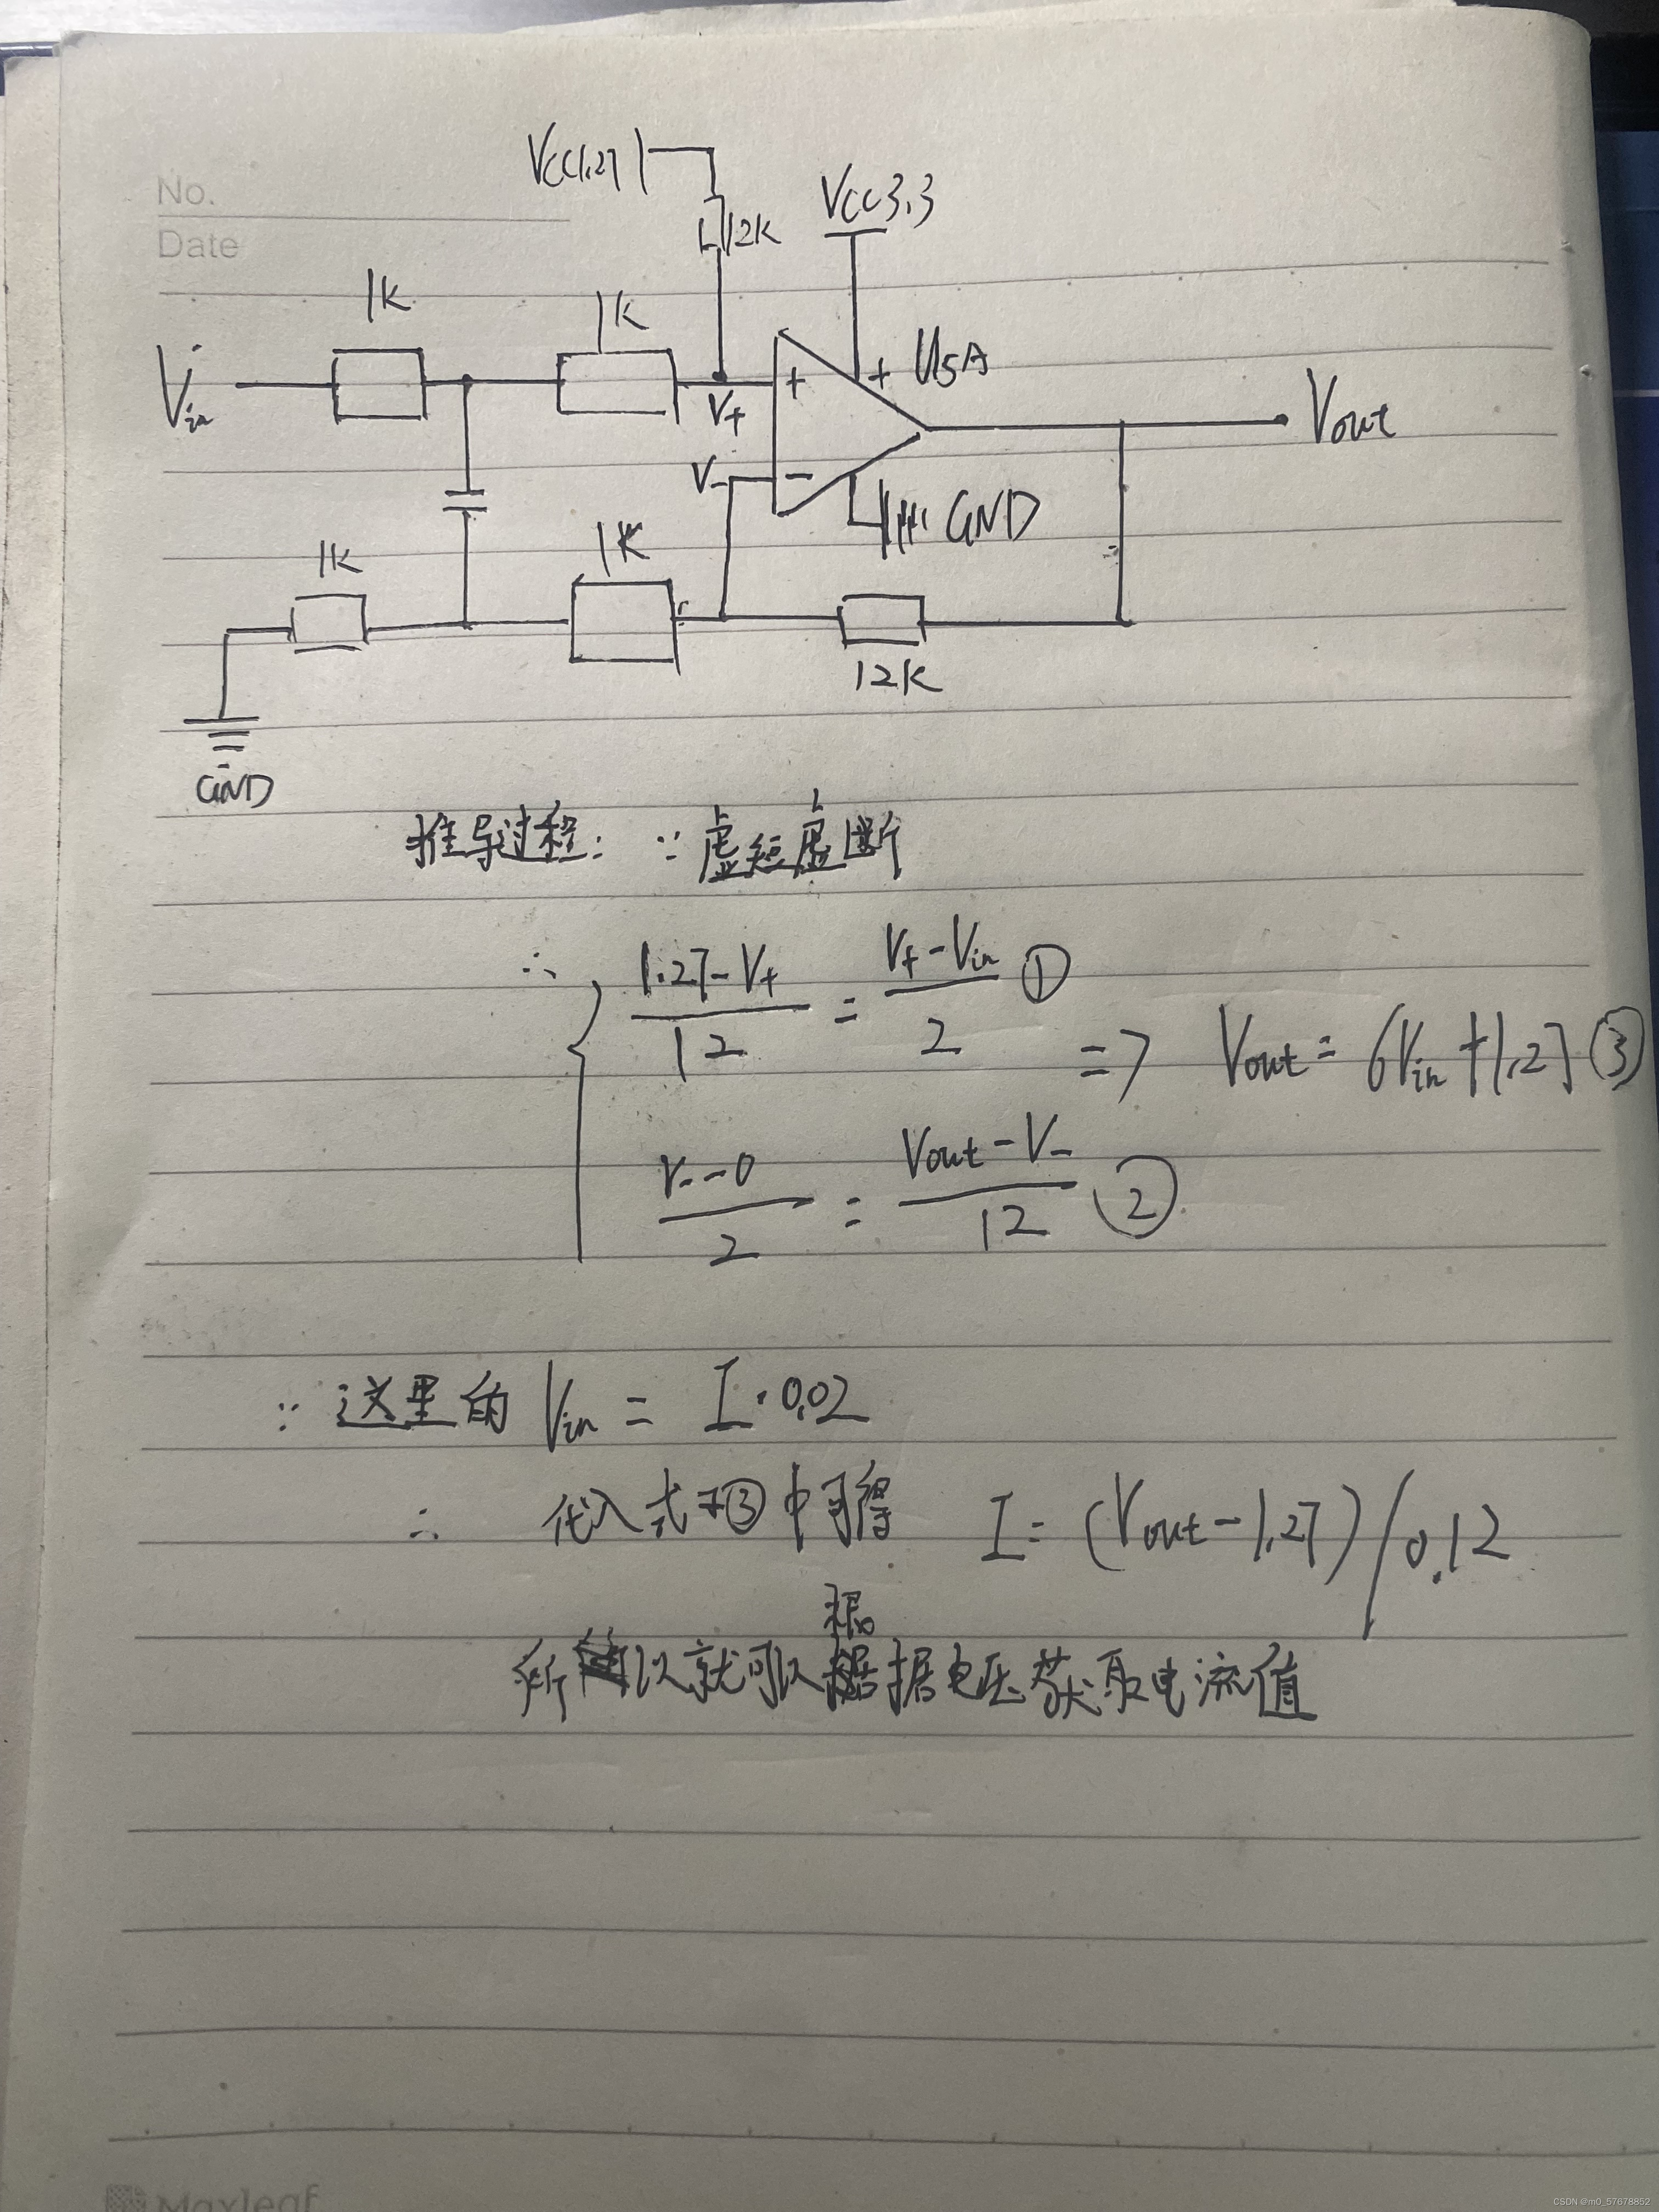 No.
Date
VCC1.27
12K
VCC3.3
1K
1K
Vin
V+
+
+
U5A
Vout
V-
-
GND
1K
1K
12K
GND
推导过程: ∵ 虚短虚断
∴ { (1.27-V+)/12 = (V+-Vin)/2 ①
=> Vout = 6Vin+1.27 ③
(V--0)/2 = (Vout-V-)/12 ②
∵ 这里的 Vin = I·0.02
∴ 代入式子③中可得 I=(Vout-1.27)/0.12
所以就可以根据电压获取电流值
Maxleaf
CSDN @m0_57678852